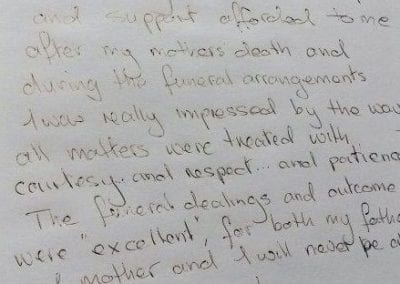 and support afforded to me
after my mothers death and
during the funeral arrangements
I was really impressed by the way
all matters were treated with
courtesy and respect... and patienc
The funeral dealings and outcome
were "excellent", for both my fathe
mother and I will never be a